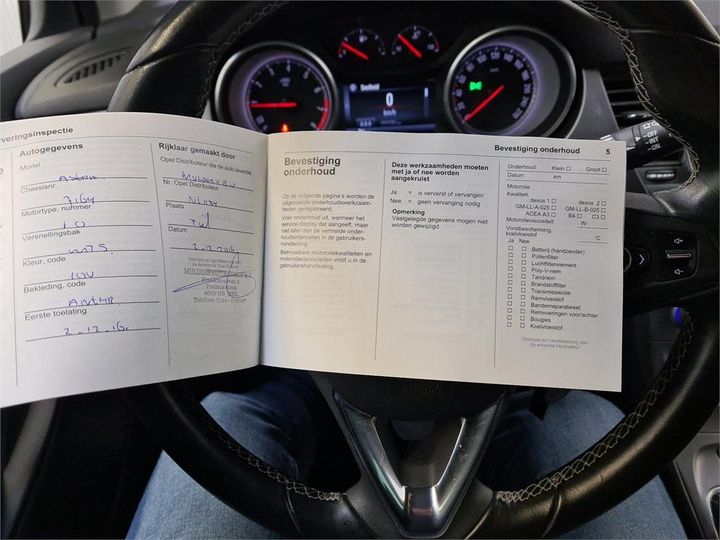 veringsinspectie
Autogegevens
Model
Astra
Chassisnr.
7164
Motortype, nummer
1.0
Versnellingsbak
MT5
Kleur, code
10V
Bekleding, code
ANTHR
Eerste toelating
2.12.16.
Rijklaar gemaakt door
Opel Distributeur die de auto leverde
Mulders B.V
Nr. Opel Distributeur
Plaats
Tiel
Datum
Stempel en handtekening van de
Telefoon
Bevestiging
onderhoud
Op de volgende pagina's worden de
uitgevoerde onderhoudswerkzaam-
heden geregistreerd.
Voer onderhoud uit, wanneer het
service-display dat aangeeft, maar
niet later dan de vermelde onder-
houdsintervallen in de gebruikers-
handleiding.
Betrouwbare motoroliekwaliteiten en
motorolieviscositeiten vindt u in de
gebruikershandleiding.
Deze werkzaamheden moeten
met ja of nee worden
aangekruist
Ja = is ververst of vervangen
Nee = geen vervanging nodig
Opmerking
Vastgelegde gegevens mogen niet
worden gewijzigd.
Bevestiging onderhoud 5
Onderhoud: Klein ☐ Groot ☐
Datum km
Motorolie
Kwaliteit: dexos 1 ☐ dexos 2 ☐
GM-LL-A-025 ☐ GM-LL-B-025 ☐
ACEA A3 ☐ B4 ☐ C3 ☐
Motorolieviscositeit: W-
Vorstbescherming
koelvloeistof °C
Ja Nee
☐ ☐ Batterij (handzender)
☐ ☐ Pollenfilter
☐ ☐ Luchtfilterelement
☐ ☐ Poly-V-riem
☐ ☐ Tandriem
☐ ☐ Brandstoffilter
☐ ☐ Transmissieolie
☐ ☐ Remvloeistof
☐ ☐ Bandenreparatieset
☐ ☐ Remvoeringen voor/achter
☐ ☐ Bougies
☐ ☐ Koelvloeistof
Stempel en handtekening van
de erkende reparateur
Snelheid
0
km/h
OFF
INT